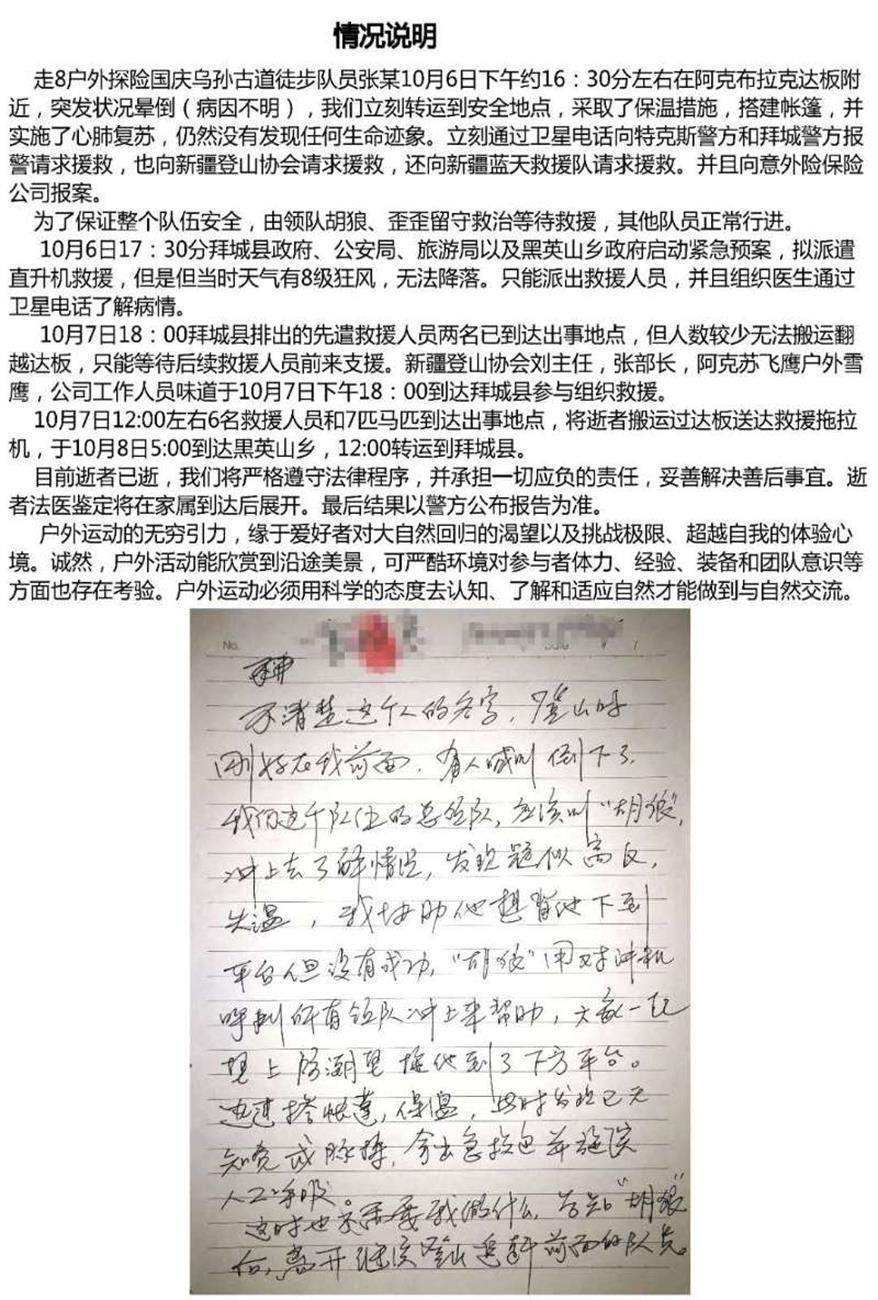 情况说明
走8户外探险国庆乌孙古道徒步队员张某10月6日下午约16：30分左右在阿克布拉克达板附
近，突发状况晕倒（病因不明），我们立刻转运到安全地点，采取了保温措施，搭建帐篷，并
实施了心肺复苏，仍然没有发现任何生命迹象。立刻通过卫星电话向特克斯警方和拜城警方报
警请求援救，也向新疆登山协会请求援救，还向新疆蓝天救援队请求援救。并且向意外险保险
公司报案。
为了保证整个队伍安全，由领队胡狼、歪歪留守救治等待救援，其他队员正常行进。
10月6日17：30分拜城县政府、公安局、旅游局以及黑英山乡政府启动紧急预案，拟派遣
直升机救援，但是但当时天气有8级狂风，无法降落。只能派出救援人员，并且组织医生通过
卫星电话了解病情。
10月7日18：00拜城县排出的先遣救援人员两名已到达出事地点，但人数较少无法搬运翻
越达板，只能等待后续救援人员前来支援。新疆登山协会刘主任，张部长，阿克苏飞鹰户外雪
鹰，公司工作人员味道于10月7日下午18：00到达拜城县参与组织救援。
10月7日12:00左右6名救援人员和7匹马匹到达出事地点，将逝者搬运过达板送达救援拖拉
机，于10月8日5:00到达黑英山乡，12:00转运到拜城县。
目前逝者已逝，我们将严格遵守法律程序，并承担一切应负的责任，妥善解决善后事宜。逝
者法医鉴定将在家属到达后展开。最后结果以警方公布报告为准。
户外运动的无穷引力，缘于爱好者对大自然回归的渴望以及挑战极限、超越自我的体验心
境。诚然，户外活动能欣赏到沿途美景，可严酷环境对参与者体力、经验、装备和团队意识等
方面也存在考验。户外运动必须用科学的态度去认知、了解和适应自然才能做到与自然交流。
No.
不清楚这个人的名字，登山时
刚好在我前面，有人喊叫倒下了，
我们这个队伍的总领队，应该叫"胡狼"，
冲上去了解情况，发现疑似高反，
失温，我协助他想背他下到
平台但没有成功，"胡狼"用对讲机
呼叫所有领队冲上来帮助，大家一起
用上防潮垫 他到了下方平台。
迅速搭帐篷，保温，此时发现已无
知觉或脉搏，拿出急救包并施展
人工呼吸。
这时也不需要我做什么，告知"胡狼"
后，离开继续登山追赶前面的队员。